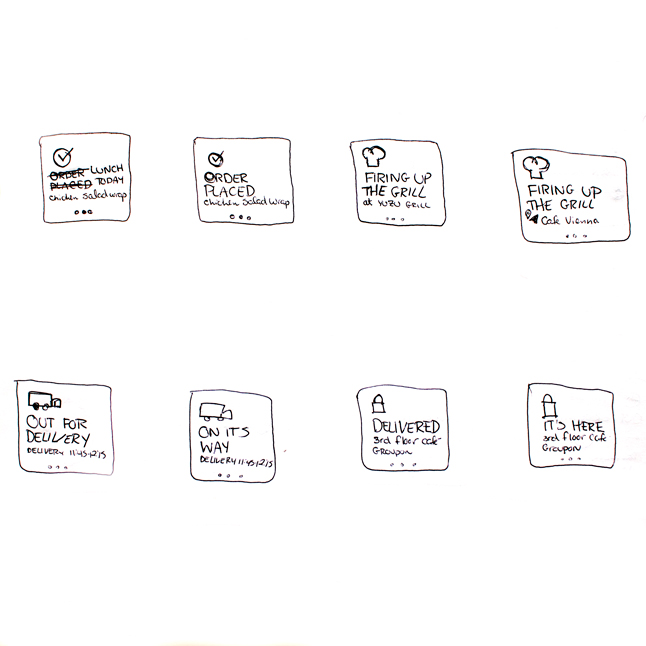 ORDER LUNCH
PLACED TODAY
chicken salad wrap
ORDER
PLACED
chicken salad wrap
FIRING UP
THE GRILL
at YUZU GRILL
FIRING UP
THE GRILL
Cafe Vienna
OUT FOR
DELIVERY
DELIVERY 11:45-12:15
ON ITS
WAY
DELIVERY 11:45-12:15
DELIVERED
3rd floor café
GROUPON
IT'S HERE
3rd floor café
Groupon